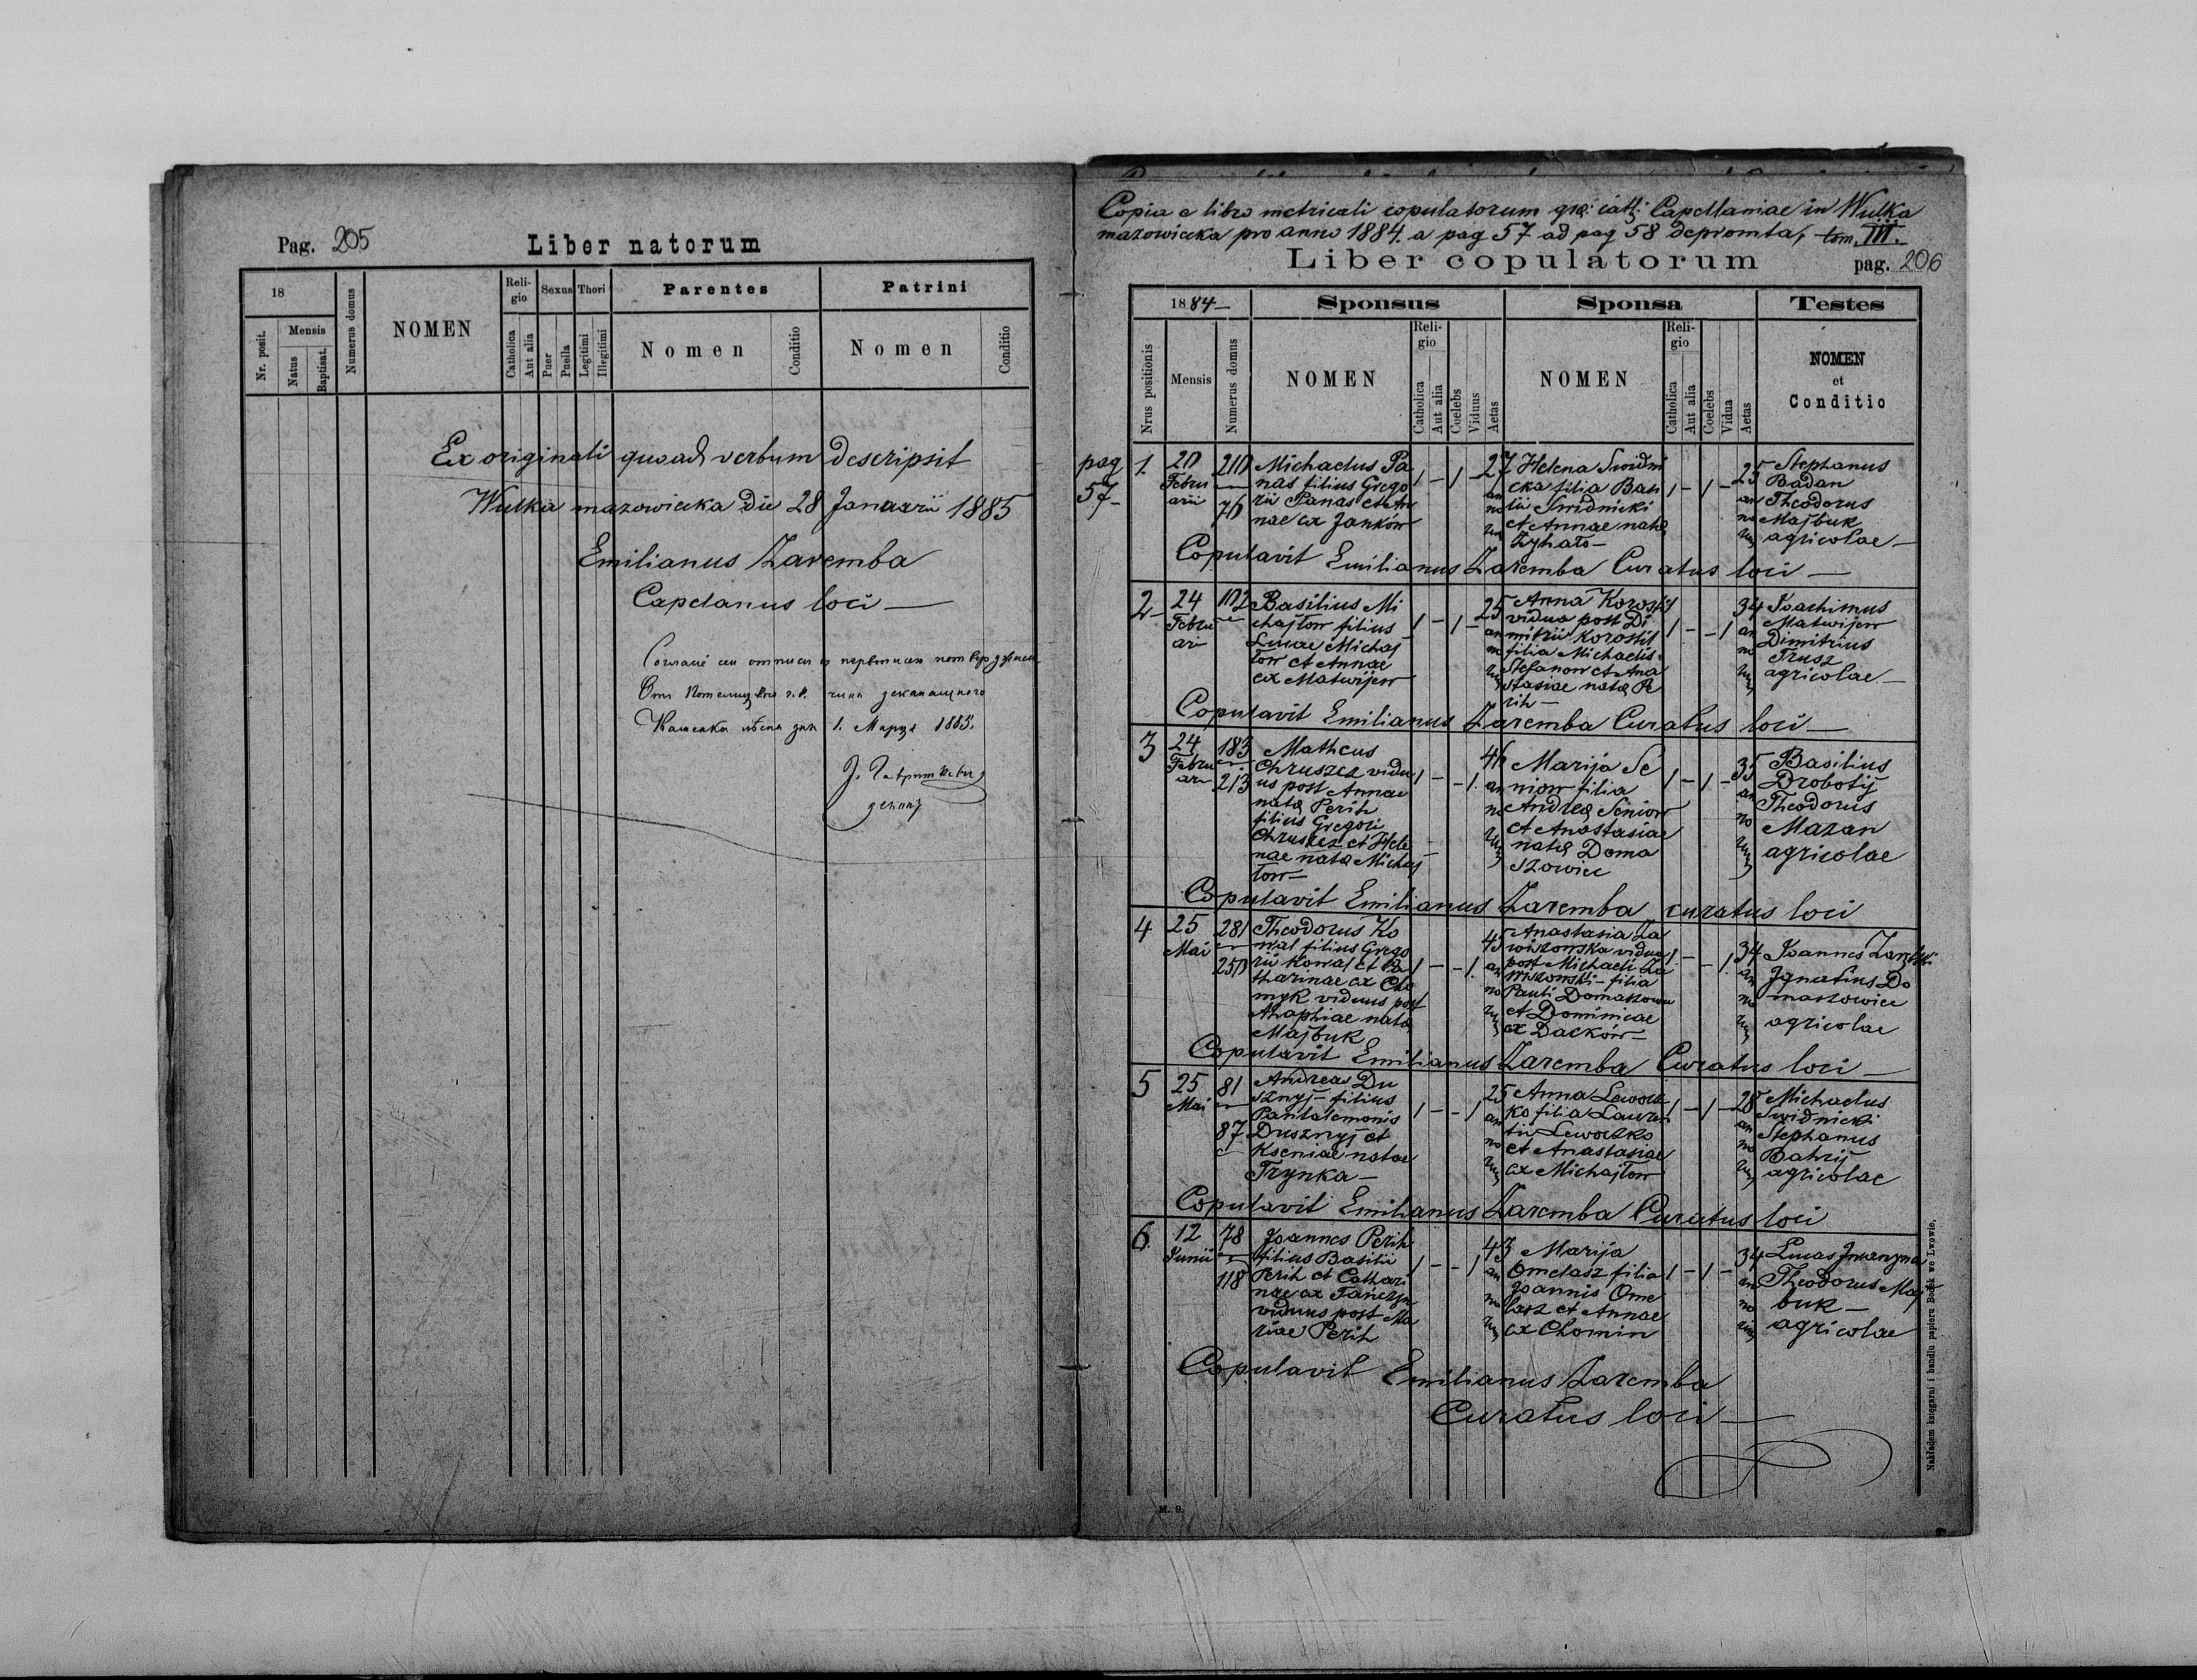 Pag. 205
Liber natorum
18
Nr. posit.
Mensis
Natus
Baptisat.
Numerus domus
NOMEN
Reli-
gio
Catholica
Aut alia
Sexus
Puer
Puella
Thori
Legitimi
Illegitimi
Parentes
Nomen
Conditio
Patrini
Nomen
Conditio
Ex originali quoad verbum descripsit
Wulka mazowiecka Die 28 Januarii 1885
Emilianus Zaremba
Capelanus loci
1. Марця 1885.
Copia e libro metricali copulatorum gr: cath: Capellaniae in Wulka
mazowiecka pro anno 1884. a pag 57 ad pag 58 depromta, tom. III.
Liber copulatorum
pag. 206
1884
Nrus positionis
Mensis
Numerus domus
Sponsus
NOMEN
Reli-
gio
Catholica
Aut alia
Coelebs
Viduus
Aetas
Sponsa
NOMEN
Reli-
gio
Catholica
Aut alia
Coelebs
Vidua
Aetas
Testes
NOMEN
et
Conditio
pag
57
1.
20
Febru
arii
210
76
Michaelus Pa
nas filius Grego
rii Panas et An
nae ex Janków
1 - 1
27
an
no
rum
Helena Swidni
cka filia Basi
lii Swidnicki
et Annae nata
Zyhało
1 - 1 -
25
an
no
rum
Stephanus
Badan
Theodorus
Majbuk
agricolae
Copulavit Emilianus Zaremba Curatus loci
2
24
Febru
ari
102
Basilius Mi
chajłow filius
Lucae Michaj
łow et Annae
ex Matwijew
1 - 1 -
25
an
no
rum
Anna Korostil
vidua post Di
mitrii Korostil
filia Michaelis
Stefanow et Ana
stasiae nata Pe
rih
1 - - 1
34
an
no
rum
Joachimus
Matwijew
Dimitrius
Trusz
agricolae
Copulavit Emilianus Zaremba Curatus loci
3
24
Febru
ari
183
213
Matheus
Chruszcz vidu
us post Annae
nata Perih
filius Gregorii
Chruszcz et Hele
nae nata Michaj
łow
1 - - 1.
46
an
no
rum
Marija Se
niow filia
Andrea Seniow
et Anastasiae
nata Doma
szowiec
1 - 1 -
35
an
no
rum
Basilius
Drobotij
Theodorus
Mazan
agricolae
Copulavit Emilianus Zaremba curatus loci
4
25
Mai
281
250
Theodorus Ko
wal filius Grego
rii Kowal et Ca
tharinae ex Cho
myk viduus post
Ahaphiae nata
Majbuk
1 - - 1.
45
an
no
rum
Anastasia Za
wiszowska vidua
post Michaeli Za
wiszowski filia
Pauli Domaszowiec
et Dominicae
ex Dacków
1 - - 1.
34
an
no
rum
Joannes
Ignatius Do
maszowiec
agricolae
Copulavit Emilianus Zaremba Curatus loci
5
25
Mai
81
87
Andrea Du
sznyj filius
Pantalemonis
Dusznyj et
Kseniae natae
Trynka
1 - - 1
25
an
no
rum
Anna Lewocz
ko filia Lauren
tii Lewoczko
et Anastasiae
ex Michajłow
1 - 1 -
28
an
no
rum
Michaelus
Swidnicki
Stephanus
Bahrij
agricolae
Copulavit Emilianus Zaremba Curatus loci
6.
12
Junii
78
118
Joannes Perih
filius Basilii
Perih et Cathari
nae ex Tanczyn
viduus post Ma
riae Perih
1 - - 1
43
an
no
rum
Marija
Omelasz filia
Joannis Ome
lasz et Annae
ex Chomin
1 - 1 -
34
an
no
rum
Lucas
Theodorus Maj
buk
agricolae
Copulavit Emilianus Zaremba
Curatus loci
M. 9.
Nakładem księgarni i handlu papieru Bodek we Lwowie.